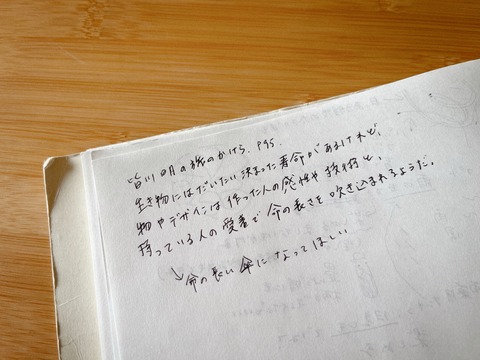 皆川明の旅のかけら、P95.
生き物にはだいたい決まった寿命があるけれど、
物やデザインは作った人の感性や技術と、
持っている人の愛着で命の長さを吹き込まれるようだ。
↳命の長い傘になってほしい